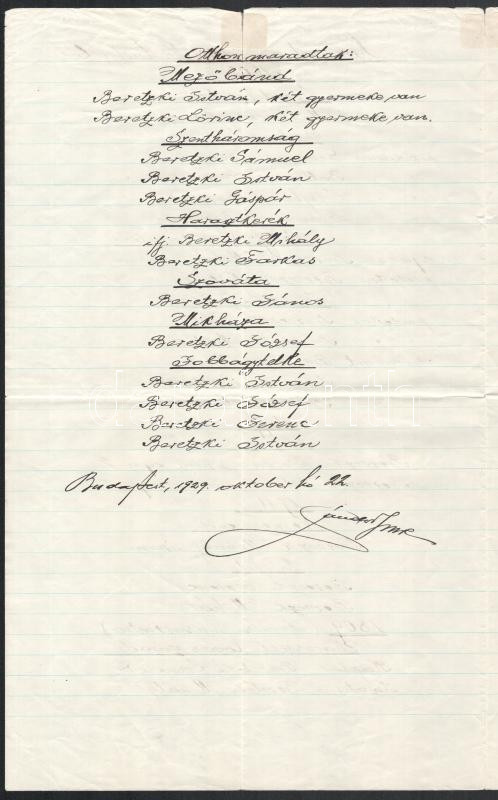 Otthon maradtak:
Mezőbánd
Beretzki István, két gyermeke van
Beretzki Lőrinc, két gyermeke van.
Szentháromság
Beretzki Sámuel
Beretzki István
Beretzki Gáspár
Harasztkerék
ifj. Beretzki Mihály
Beretzki Farkas
Szováta
Beretzki János
Mikháza
Beretzki József
Jobbágytelke
Beretzki István
Beretzki József
Beretzki Ferenc
Beretzki István
Budapest, 1929. október hó 22.
Sándor Imre